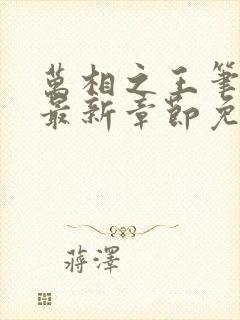 萬相之王筆
最新章節免
蔣澤